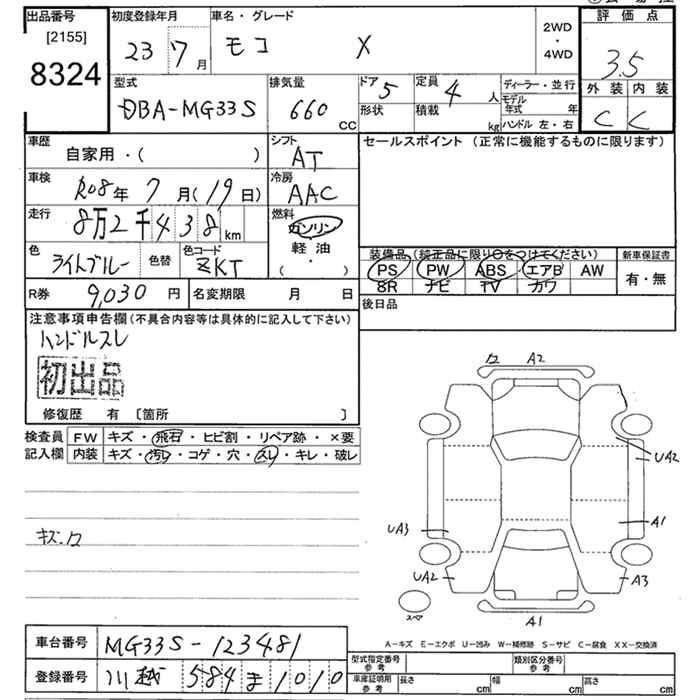 出品番号
[2155]
8324
初度登録年月
23 7月
車名・グレード
モコ X
2WD
・
4WD
評価点
3.5
外装 内装
C C
型式
DBA-MG33S
排気量
660 CC
ドア 5
形状
定員 4 人
積載 kg
ディーラー・並行
モデル年式 年
ハンドル 左・右
車歴
自家用・( )
シフト
AT
セールスポイント(正常に機能するものに限ります)
車検
R08年 7月(19日)
冷房
AAC
走行
8万2千438km
燃料
ガソリン
軽油
( ・ )
色
ライトブルー
色替
色コード
ZKT
装備品(純正品に限り○をつけてください)
PS PW ABS エアB AW
SR ナビ TV カワ
新車保証書
有・無
R券 9,030 円
名変期限 月 日
後日品
注意事項申告欄(不具合内容等は具体的に記入して下さい)
ハンドルスレ
初出品
修復歴 有 〔箇所 〕
検査員
記入欄
FW キズ・飛石・ヒビ割・リペア跡・×要
内装 キズ・汚レ・コゲ・穴・スレ・キレ・破レ
A2
UA2
キズ.ワ
UA3
A1
UA2
A3
スペア
A1
車台番号 MG33S-123481
登録番号 川越 584 ま 1010
A-キズ E-エクボ U-凹み W-補修跡 S-サビ C-腐食 XX-交換済
型式指定番号
参考
類別区分番号
参考
車庫証明用
参考
長さ cm 幅 cm 高さ cm